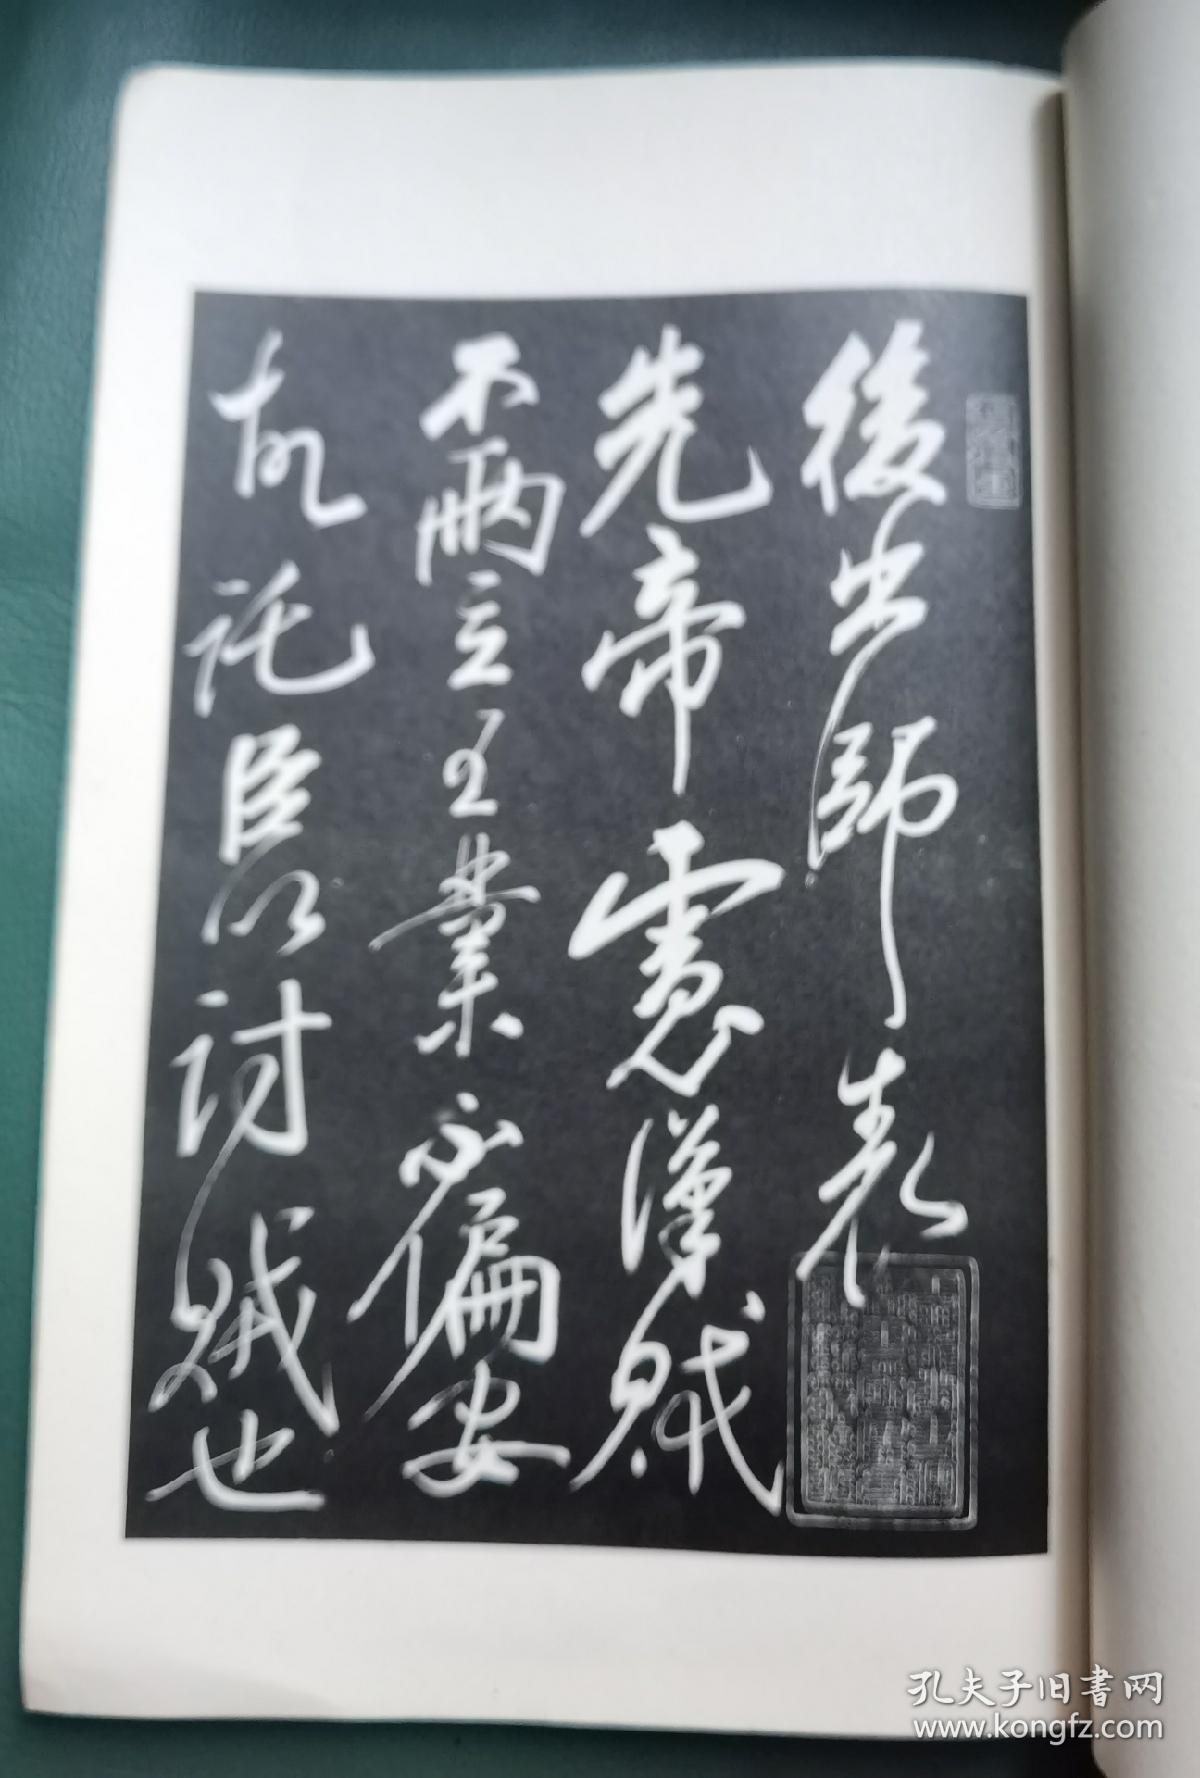 後出師表
先帝慮漢賊
不兩立王業不偏安
故託臣以討賊也
孔夫子旧書网
www.kongfz.com